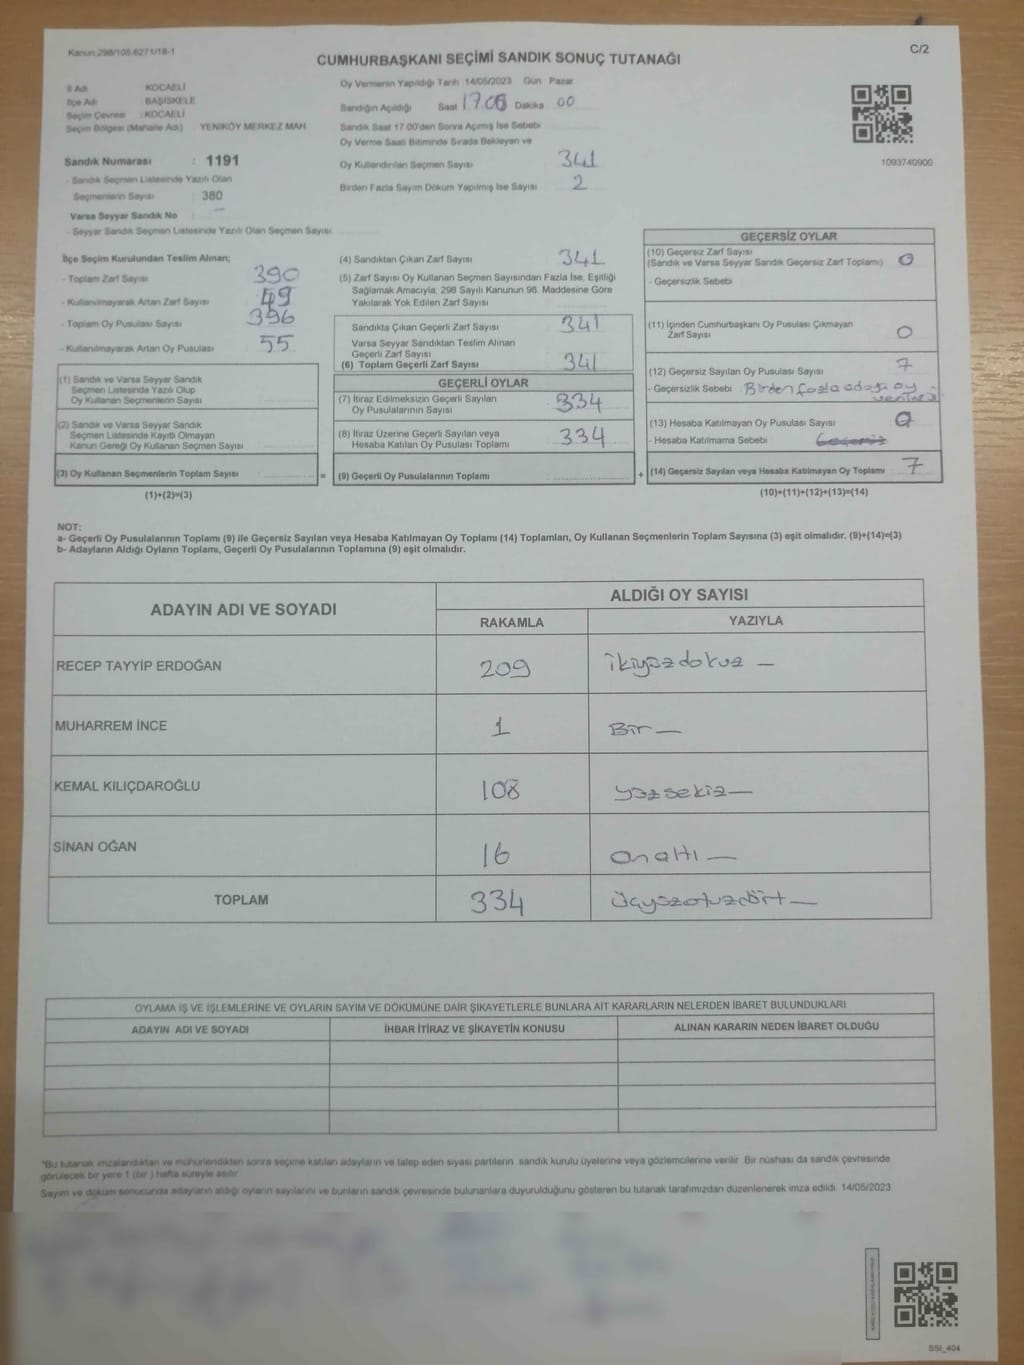 Kanun.298/105.627 1/18-1
C/2
CUMHURBAŞKANI SEÇİMİ SANDIK SONUÇ TUTANAĞI
İl Adı KOCAELİ
İlçe Adı BAŞİSKELE
Seçim Çevresi : KOCAELİ
Seçim Bölgesi (Mahalle Adı) YENİKÖY MERKEZ MAH.
Sandık Numarası : 1191
- Sandık Seçmen Listesinde Yazılı Olan
Seçmenlerin Sayısı : 380
Varsa Seyyar Sandık No
- Seyyar Sandık Seçmen Listesinde Yazılı Olan Seçmen Sayısı
Oy Vermenin Yapıldığı Tarih 14/05/2023 Gün Pazar
Sandığın Açıldığı Saat 17.00 Dakika 00
Sandık Saat 17.00'den Sonra Açımış İse Sebebi
Oy Verme Saati Bitiminde Sırada Bekleyen ve
Oy Kullandırılan Seçmen Sayısı 341
Birden Fazla Sayım Döküm Yapılmış İse Sayısı 2
1093740900
İlçe Seçim Kurulundan Teslim Alınan;
- Toplam Zarf Sayısı 390
- Kullanılmayarak Artan Zarf Sayısı 49
- Toplam Oy Pusulası Sayısı 396
- Kullanılmayarak Artan Oy Pusulası 55
(1) Sandık ve Varsa Seyyar Sandık
Seçmen Listesinde Yazılı Olup
Oy Kullanan Seçmenlerin Sayısı
(2) Sandık ve Varsa Seyyar Sandık
Seçmen Listesinde Kayıtlı Olmayan
Kanun Gereği Oy Kullanan Seçmen Sayısı
(3) Oy Kullanan Seçmenlerin Toplam Sayısı =
(1)+(2)=(3)
(4) Sandıktan Çıkan Zarf Sayısı 341
(5) Zarf Sayısı Oy Kullanan Seçmen Sayısından Fazla İse, Eşitliği
Sağlamak Amacıyla, 298 Sayılı Kanunun 98. Maddesine Göre
Yakılarak Yok Edilen Zarf Sayısı
Sandıkta Çıkan Geçerli Zarf Sayısı 341
Varsa Seyyar Sandıktan Teslim Alınan
Geçerli Zarf Sayısı
(6) Toplam Geçerli Zarf Sayısı 341
GEÇERLİ OYLAR
(7) İtiraz Edilmeksizin Geçerli Sayılan
Oy Pusulalarının Sayısı 334
(8) İtiraz Üzerine Geçerli Sayılan veya
Hesaba Katılan Oy Pusulası Toplamı 334
(9) Geçerli Oy Pusulalarının Toplamı +
GEÇERSİZ OYLAR
(10) Geçersiz Zarf Sayısı
(Sandık ve Varsa Seyyar Sandık Geçersiz Zarf Toplamı) 0
- Geçersizlik Sebebi
(11) İçinden Cumhurbaşkanı Oy Pusulası Çıkmayan
Zarf Sayısı 0
(12) Geçersiz Sayılan Oy Pusulası Sayısı 7
- Geçersizlik Sebebi Birden fazla adaya oy
(13) Hesaba Katılmayan Oy Pusulası Sayısı 0
- Hesaba Katılmama Sebebi
(14) Geçersiz Sayılan veya Hesaba Katılmayan Oy Toplamı 7
(10)+(11)+(12)+(13)=(14)
NOT:
a- Geçerli Oy Pusulalarının Toplamı (9) ile Geçersiz Sayılan veya Hesaba Katılmayan Oy Toplamı (14) Toplamları, Oy Kullanan Seçmenlerin Toplam Sayısına (3) eşit olmalıdır. (9)+(14)=(3)
b- Adayların Aldığı Oyların Toplamı, Geçerli Oy Pusulalarının Toplamına (9) eşit olmalıdır.
ADAYIN ADI VE SOYADI ALDIĞI OY SAYISI
RAKAMLA YAZIYLA
RECEP TAYYİP ERDOĞAN 209 ikiyüzdokuz —
MUHARREM İNCE 1 Bir —
KEMAL KILIÇDAROĞLU 108 yüzsekiz —
SİNAN OĞAN 16 onaltı —
TOPLAM 334 üçyüzotuzdört —
OYLAMA İŞ VE İŞLEMLERİNE VE OYLARIN SAYIM VE DÖKÜMÜNE DAİR ŞİKAYETLERLE BUNLARA AİT KARARLARIN NELERDEN İBARET BULUNDUKLARI
ADAYIN ADI VE SOYADI İHBAR İTİRAZ VE ŞİKAYETİN KONUSU ALINAN KARARIN NEDEN İBARET OLDUĞU
*Bu tutanak imzalandıktan ve mühürlendikten sonra seçime katılan adayların ve talep eden siyasi partilerin sandık kurulu üyelerine veya gözlemcilerine verilir. Bir nüshası da sandık çevresinde
görülecek bir yere 1 (bir ) hafta süreyle asılır.
Sayım ve döküm sonucunda adayların aldığı oyların sayılarını ve bunların sandık çevresinde bulunanlara duyurulduğunu gösteren bu tutanak tarafımızdan düzenlenerek imza edildi. 14/05/2023
SSI_404